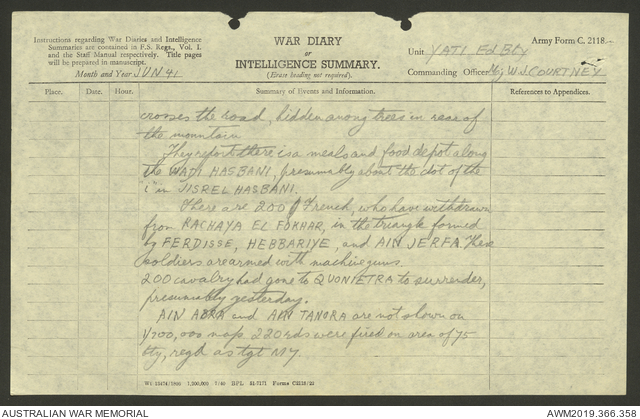 Instructions regarding War Diaries and Intelligence
Summaries are contained in F.S. Regs., Vol. I.
and the Staff Manual respectively. Title pages
will be prepared in manuscript.
Month and Year JUN 41
WAR DIARY
OR
INTELLIGENCE SUMMARY.
(Erase heading not required).
Army Form C. 2118.
Unit YATI Fd Bty
Commanding Officer Maj W.J. COURTNEY
Place. Date. Hour. Summary of Events and Information. References to Appendices.
crosses the road, hidden among trees in rear of
the mountain
They report there is a meals and food depot along
the WADI HASBANI, presumably about the dot of the
"i" in JISREL HASBANI.
There are 200 French, who have withdrawn
from RACHAYA EL FOKHAR, in the triangle formed
by FERDISSE, HEBBARIYE, and AIN JERFA. These
soldiers are armed with machine guns.
200 cavalry had gone to QUONIETRA to surrender,
presumably yesterday.
AIN ABRA and TANORA are not shown on
1/200,000 map 220 rds were fired on area of 75
bty, regd as tgt M7.
Forms C2118/22
AUSTRALIAN WAR MEMORIAL
AWM2019.366.358